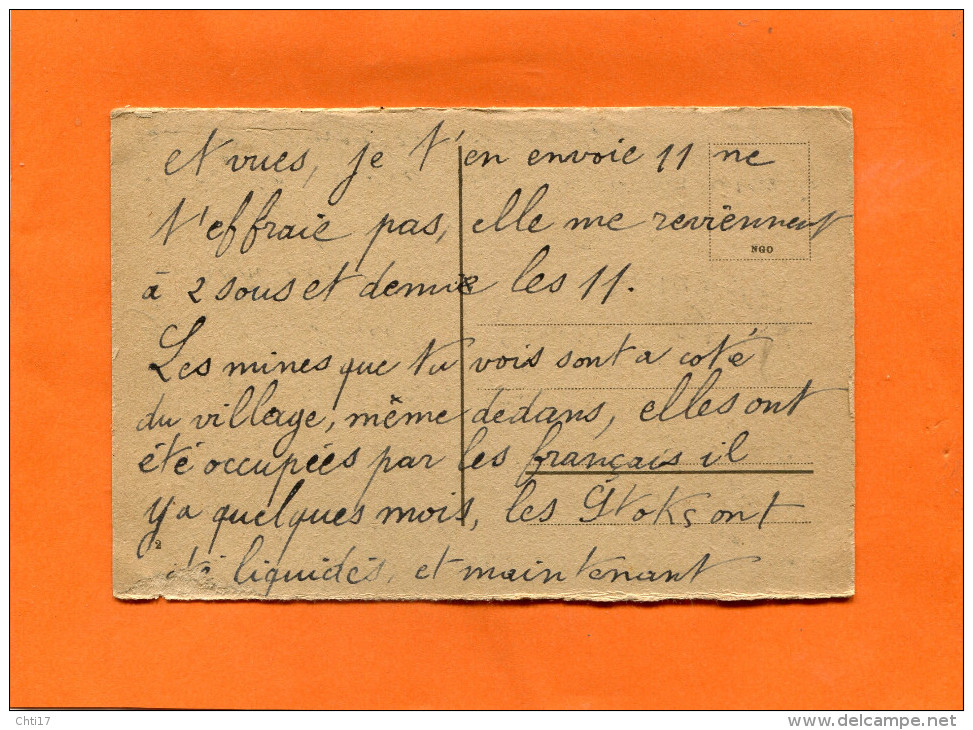 et vues, je t'en envoie 11 ne
t'effraie pas, elle me reviennent
NGO
à 2 sous et demie les 11.
Les mines que tu vois sont a coté
du village, même dedans, elles ont
été occupées par les français il
y a quelques mois, les Stoks ont
2
liquidés, et maintenant
Chti17
www.delcampe.net